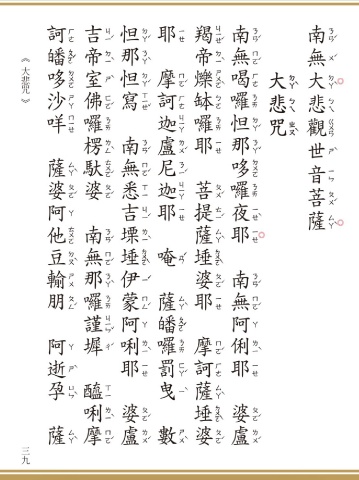 南無大悲觀世音菩薩
大悲咒
南無喝囉怛那哆囉夜耶　南無阿俐耶　婆盧
羯帝爍缽囉耶　菩提薩埵婆耶　摩訶薩埵婆
耶　摩訶迦盧尼迦耶　唵　薩皤囉罰曳　數
怛那怛寫　南無悉吉慄埵伊蒙阿唎耶　婆盧
吉帝室佛囉楞馱婆　南無那囉謹墀　醯唎摩
訶皤哆沙咩　薩婆阿他豆輸朋　阿逝孕　薩
《大悲咒》
三九